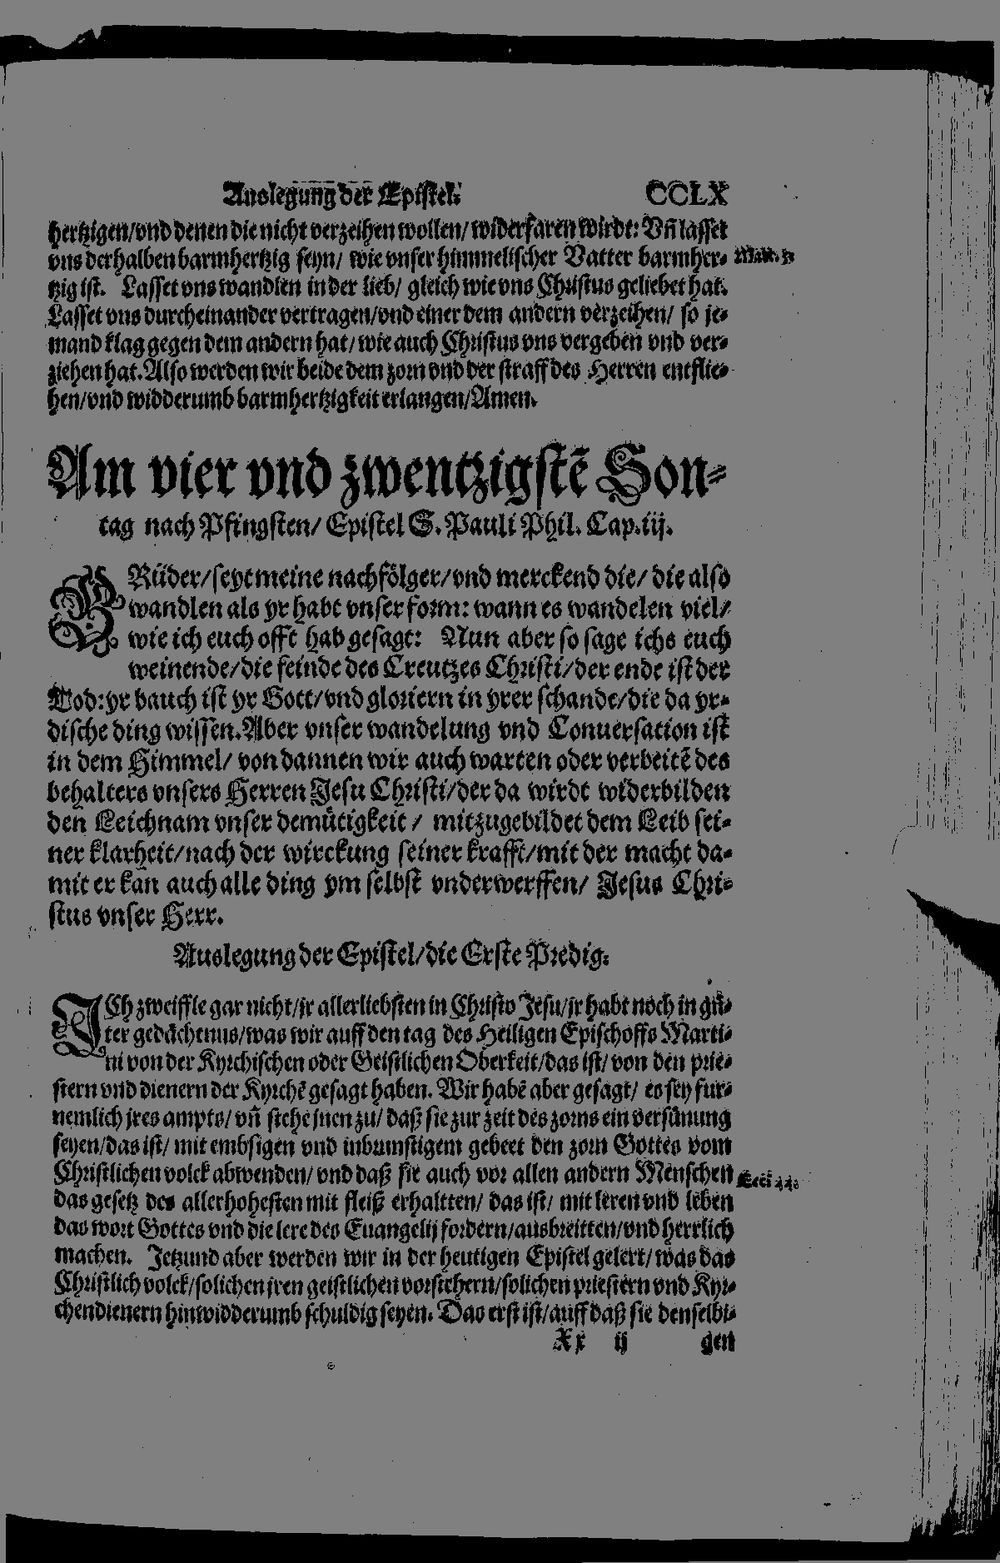 Auslegung der Epistel. CCLX
hertzigen/vnd denen die nicht verzeihen wollen/ widerfaren wirdt: Vñ lasset
vns derhalben barmhertzig seyn/ wie vnser himmelischer Vatter barmher-
tzig ist. Lasset vns wandlen in der lieb/ gleich wie vns Christus geliebet hat.
Lasset vns durcheinander vertragen/vnd einer dem andern verzeihen/ so je-
mand klag gegen dem andern hat/ wie auch Christus vns vergeben vnd ver-
ziehen hat. Also werden wir beide dem zorn vnd der straff des Herren entflie-
hen/vnd widderumb barmhertzigkeit erlangen/Amen.
Am vier vnd zwentzigstē Son-
tag nach Pfingsten/ Epistel S. Pauli Phil. Cap. iij.
BRüder/seyt meine nachfölger/vnd merckend die/ die also
wandlen als yr habt vnser form: wann es wandelen viel/
wie ich euch offt hab gesagt: Nun aber so sage ichs euch
weinende/die feinde des Creutzes Christi/der ende ist der
Tod: yr bauch ist yr Gott/vnd gloriern in yrer schande/die da yr-
dische ding wissen. Aber vnser wandelung vnd Conuersation ist
in dem Himmel/ von dannen wir auch warten oder verbeitē des
behalters vnsers Herren Jesu Christi/der da wirdt widerbilden
den Leichnam vnser demütigkeit/ mitzugebildet dem Leib sei-
ner klarheit/nach der wirckung seiner krafft/mit der macht da-
mit er kan auch alle ding ym selbst vnderwerffen/ Jesus Chri-
stus vnser Herr.
Auslegung der Epistel/die Erste Predig.
ICh zweiffle gar nicht/jr allerliebsten in Christo Jesu/jr habt noch in gü-
ter gedächtnus/was wir auff den tag des Heiligen Epischoffs Marti-
ni von der Kyrchischen oder Geistlichen Oberkeit/das ist/ von den prie-
stern vnd dienern der Kyrchē gesagt haben. Wir habē aber gesagt/ es sey für-
nemlich jres ampts/ vñ stehe jnen zu/ daß sie zur zeit des zorns ein versünung
seyen/das ist/ mit embsigen vnd inbrunstigem gebeet den zorn Gottes vom
Christlichen volck abwenden/ vnd daß sie auch vor allen andern Menschen
das gesetz des allerhohesten mit fleiß erhaltten/ das ist/ mit leren vnd leben
das wort Gottes vnd die lere des Euangelij fordern/ausbreitten/vnd herrlich
machen. Jetzund aber werden wir in der heutigen Epistel gelert/ was das
Christlich volck/solichen jren geistlichen vorstehern/solichen priestern vnd Kyr-
chendienern hinwidderumb schuldig seyen. Das erst ist/auff daß sie denselbi-
Xx ij gen